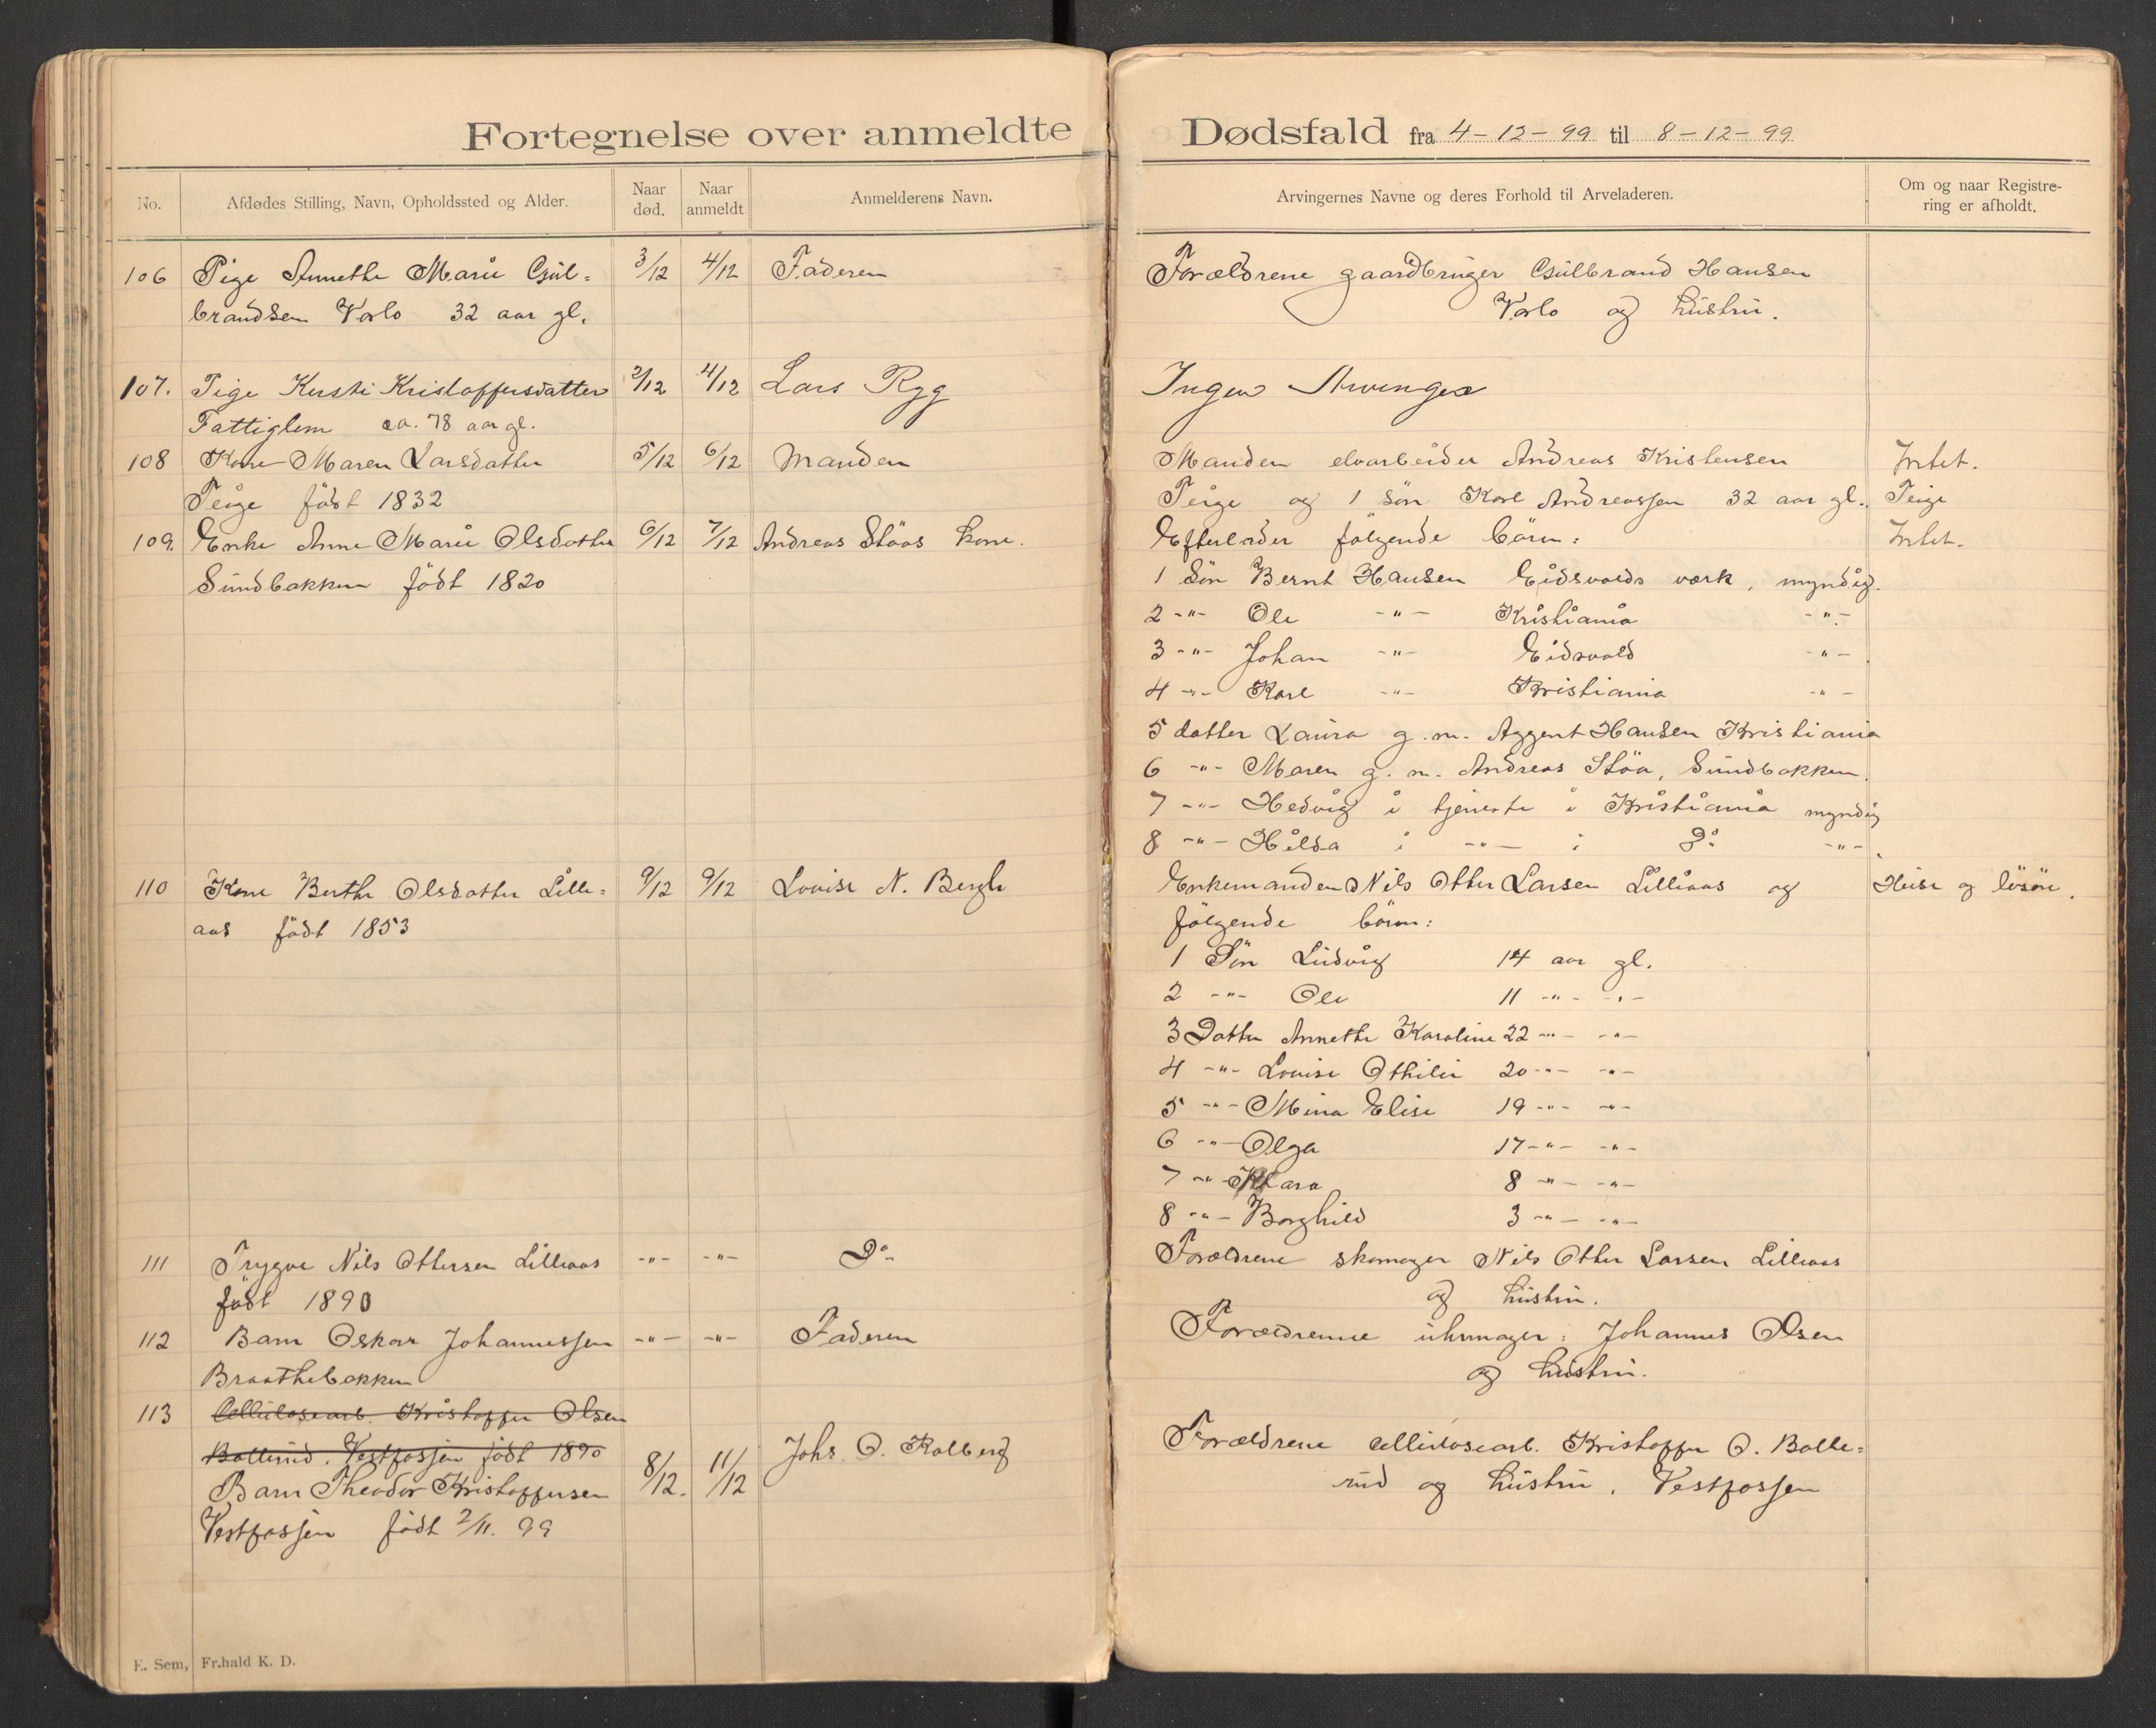 Fortegnelse over anmeldte Dødsfald fra 4-12-99 til 8-12-99
No. Afdødes Stilling, Navn, Opholdssted og Alder. Naar død. Naar anmeldt Anmelderens Navn. Arvingernes Navne og deres Forhold til Arveladeren. Om og naar Registre-
ring er afholdt.
106 Pige Annethe Marie Gul= 3/12 4/12 Faderen Forældrene gaardbruger Gulbrand Hansen
brandsen Varlo 32 aar gl. Varlo og hustru.
107. Pige Kersti Kristoffersdatter 2/12 4/12 Lars Ryg Ingen Arvinger
Fattiglem ca. 78 aar gl.
108 Kone Maren Larsdatter 5/12 6/12 Manden Manden elvarbeider Andreas Kristensen Intet.
Teige födt 1832 Teige og 1 Sön Karl Andreassen 32 aar gl. Teige
109. Enke Anne Marie Olsdatter 6/12 7/12 Andreas Stöas kone. Efterlader fölgende börn: Intet.
Sundbakken födt 1820 1 Sön Bernt Hansen Eidsvolds værk, myndig.
2 -"- Ole -"- Kristiania -"-
3 -"- Johan -"- Eidsvold -"-
4 -"- Karl -"- Kristiania -"-
5 datter Laura g.m. Aggent Hansen Kristiania
6 -"- Maren g.m. Andreas Stöa, Sundbakken.
7 -"- Hedvig i tjeneste i Kristiania myndig
8 -"- Hilda i -"- i Do -"-
110 Kone Berthe Olsdatter Lille= 9/12 9/12 Louise N. Bergh Enkemanden Nils Otter Larsen Lilleaas og Huse og lösöre.
aas födt 1853 fölgende börn:
1 Sön Ludvig 14 aar gl.
2 -"- Ole 11 -"- -"-
3 Datter Annethe Karoline 22 -"- -"-
4 -"- Louise Othilie 20 -"- -"-
5 -"- Mina Elise 19 -"- -"-
6 -"- Olga 17 -"- -"-
7 -"- Klara 8 -"- -"-
8 -"- Borghild 3 -"- -"-
111 Trygve Nils Ottersen Lilleaas -"- -"- Do Forældrene skomager Nils Otter Larsen Lilleaas
födt 1890 og hustru.
112 Barn Oskar Johannessen -"- -"- Faderen Forældrenne uhrmager: Johannes Olsen
Braathebakken og hustru.
113 Cellulosearb. Kristoffer Olsen
Bollerud. Vestfossen födt 1890 8/12. 11/12 Johs. O. Kolberg Forældrene cellulosearb. Kristoffer O. Bolle=
Barn Theodor Kristoffersen rud og hustru. Vestfossen
Vestfossen födt 2/11. 99
E. Sem, Fr.hald K. D.